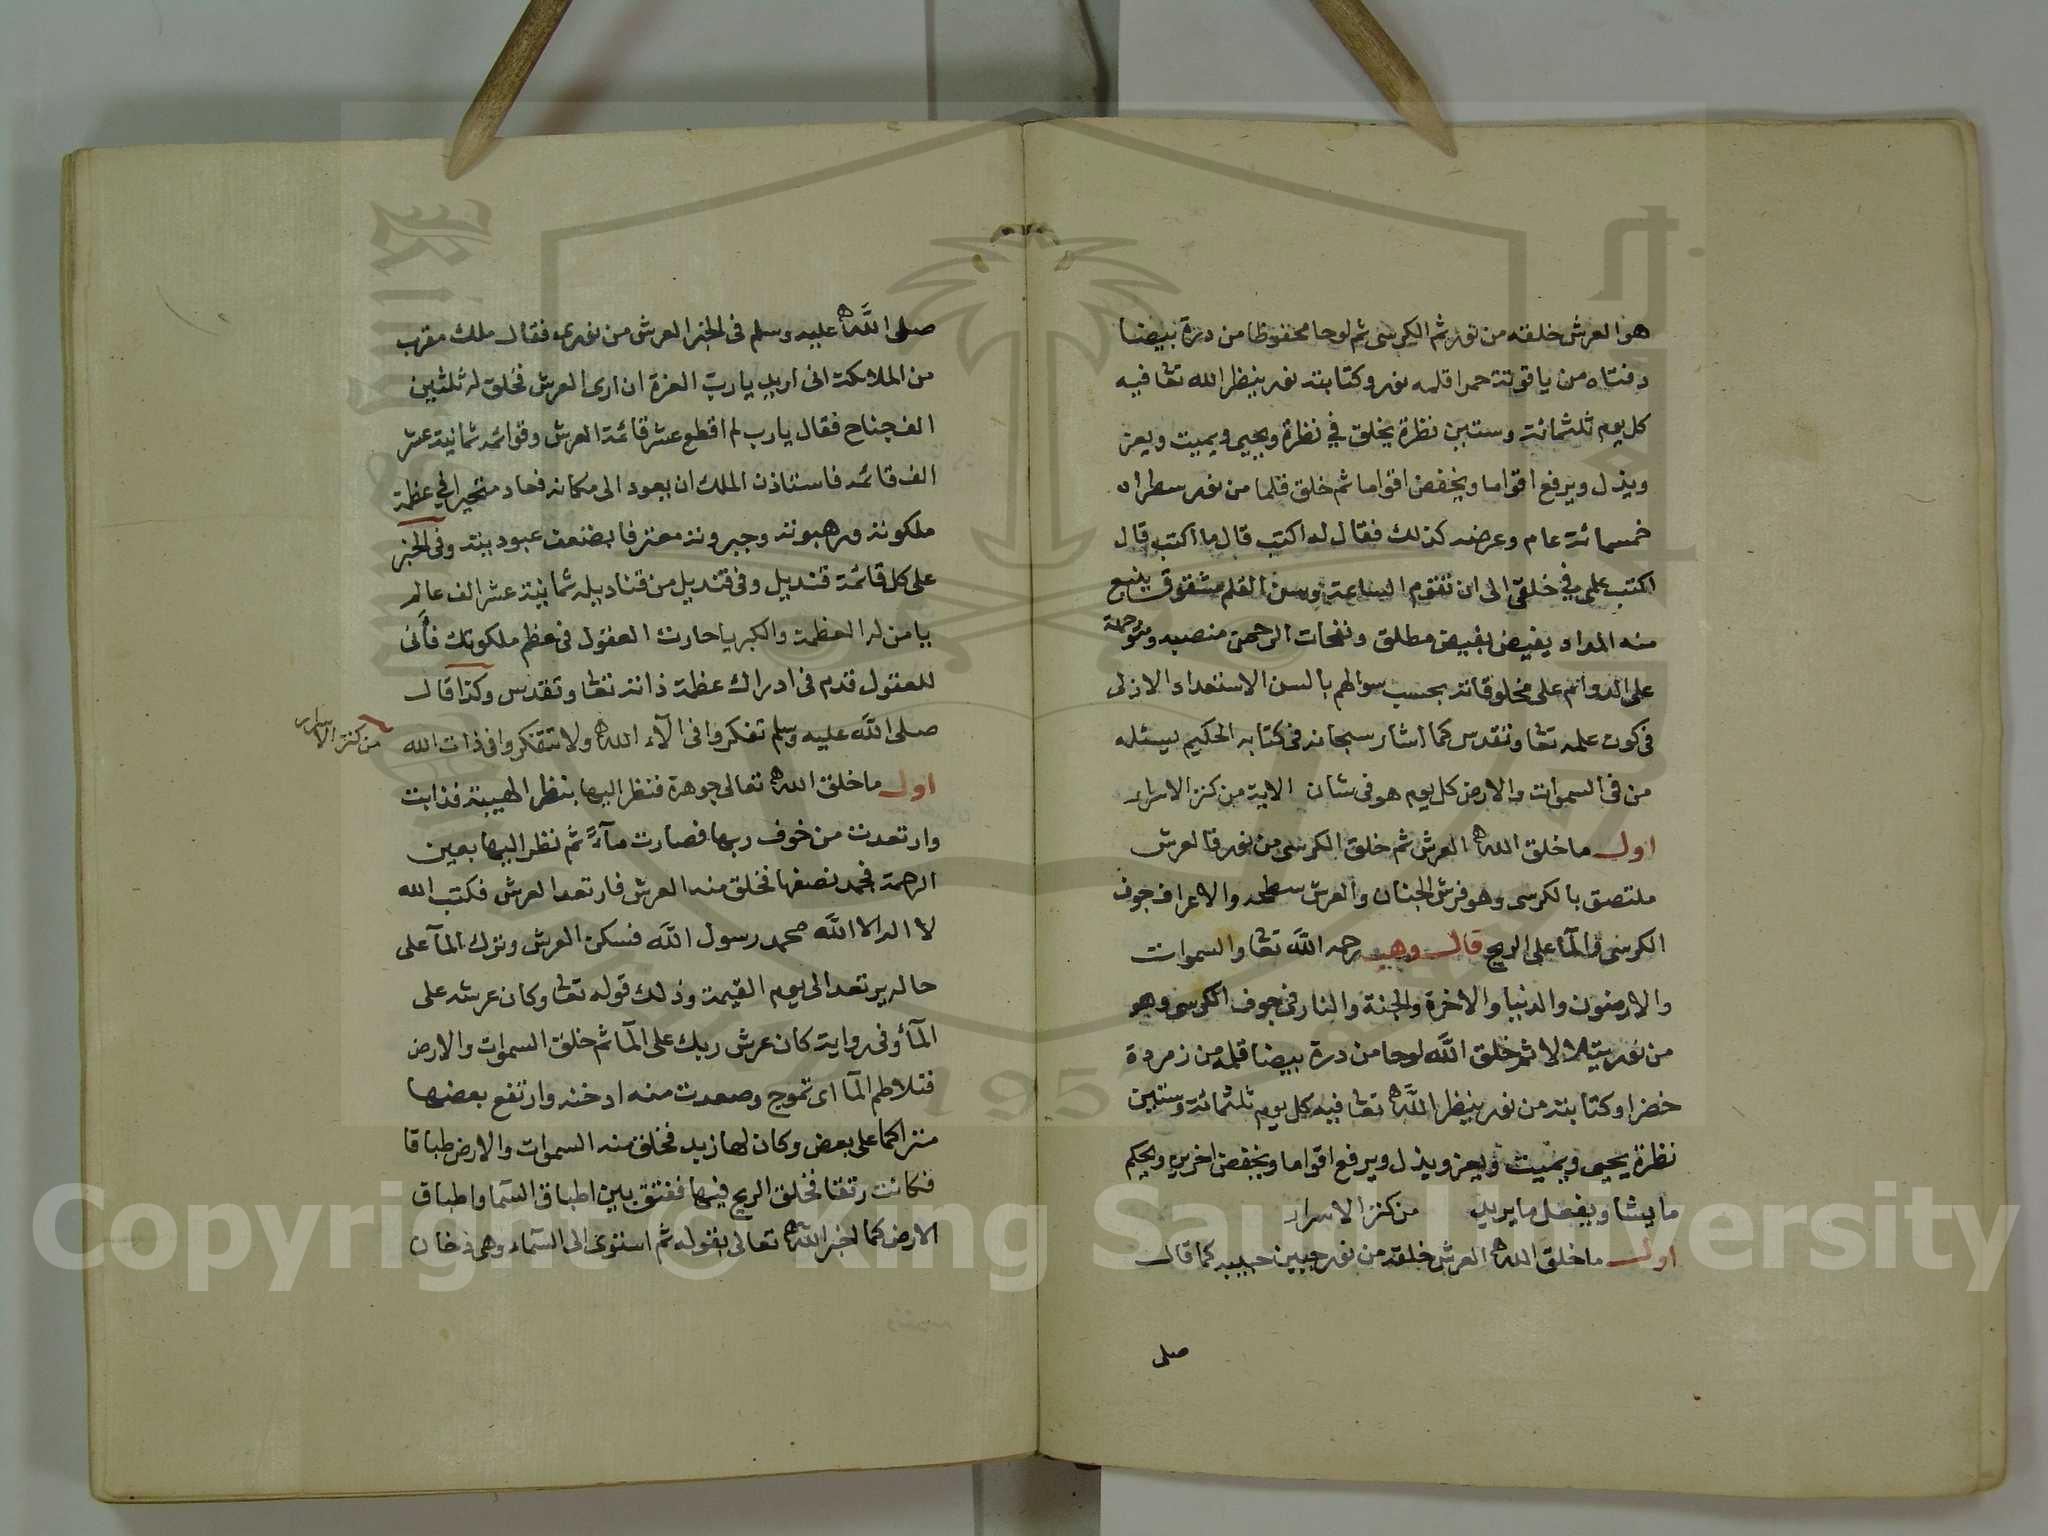 هو العرش خلقه من نور ثم الكرسى ثم لوحا محفوظا من درة بيضا
دفتاه من ياقوتة حمرا قلمه نور وكتابته نور ينظر الله تعا فيه
كل يوم ثلثمائة وستين نظرة يخلق في نظرة ويحيى ويميت ويعز
ويذل ويرفع اقواما ويخفض اقواما ثم خلق قلما من نور سطراه
خمسمائة عام وعرضه كذلك فقال له اكتب قال ما اكتب قال
اكتب علمى في خلقى الى ان تقوم الساعة وسن القلم مشقوق ينبع
منه المداد يفيض بفيض مطلق ونفحات الرحمن منصبه ومتوجهة
على الدوائم على مخلوقاته بحسب سوالهم بالسن الاستعداد الازلى
فى كون علمه تعا وتقدس كما اشار سبحانه فى كتابه الحكيم يسئله
من فى السموات والارض كل يوم هو فى شان الاية من كنز الاسرار
اول ما خلق الله العرش ثم خلق الكرسى من نور فالعرش
ملتصق بالكرسى وهو فرش الجنان والعرش سطحه والاعراف جوف
الكرسى والمآ على الريح قال وهب رحمه الله تعا والسموات
والارضون والدنيا والاخرة والجنة والنار فى جوف الكرسى وهو
من نور يتلالا ثم خلق الله لوحا من درة بيضا قلمه من زمردة
خضرا وكتابته من نور ينظر الله تعا فيه كل يوم ثلثمائة وستين
نظرة يحيى ويميت ويعز ويذل ويرفع اقواما ويخفض اخرين ويحكم
ما يشا ويفعل ما يريد من كنز الاسرار
اول ما خلق الله العرش خلقه من نور جبين حبيبه كما قال
صلى
صلى الله عليه وسلم فى الخبر العرش من نورى فقال ملك مقرب
من الملائكة انى اريد يا رب العزة ان ارى العرش فخلق له ثلثين
الف جناح فقال يا رب لم اقطع عشر قائمة العرش وقوائمه ثمانية عشر
الف قائمه فاستاذن الملك ان يعود الى مكانه فعاد متحيرا في عظمة
ملكوته ورهبوته وجبروته معترفا بضعف عبوديته وفى الخبر
على كل قائمة قنديل وفى قنديل من قناديله ثمانية عشر الف عالم
يا من له العظمة والكبريا حارت العقول فى عظم ملكوتك فأنى
للعقول قدم فى ادراك عظمة ذاته تعا وتقدس وكذا قال
صلى الله عليه وسلم تفكروا فى الآء الله ولا تتفكروا فى ذات الله
من كنز الاسرار
اول ما خلق الله تعالى جوهرة فنظر اليها بنظر الهيبة فذابت
وارتعدت من خوف ربها فصارت مآءً ثم نظر اليها بعين
الرحمة فجمد نصفها فخلق منه العرش فارتعد العرش فكتب الله
لا اله الا الله محمد رسول الله فسكن العرش وترك المآ على
حاله يرتعد الى يوم القيمة وذلك قوله تعا وكان عرشه على
المآ وفى رواية كان عرش ربك على المآ ثم خلق السموات والارض
فتلاطم المآ اى تموج وصعدت منه ادخنه وارتفع بعضها
متراكما على بعض وكان لها زبد فخلق منه السموات والارض طباقا
فكانت رتقا فخلق الريح فيها ففتق بين اطباق السمآ واطباق
الارض كما اخبر الله تعالى بقوله ثم استوى الى السمآء وهى دخان
Copyright © King Saud University
1957